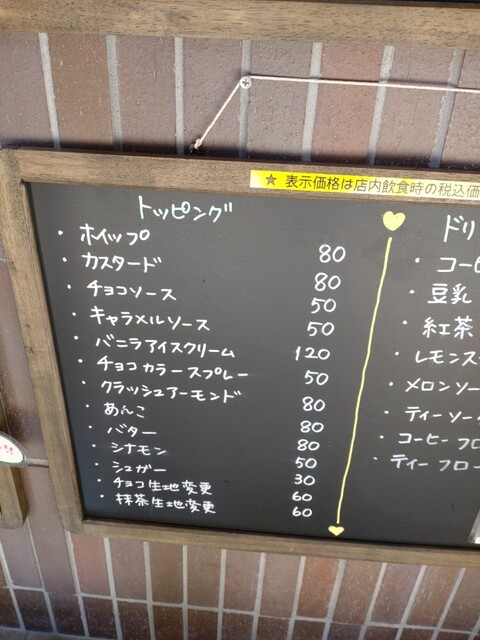 ★ 表示価格は店内飲食時の税込価
トッピング
・ホイップ 80
・カスタード 80
・チョコソース 50
・キャラメルソース 50
・バニラアイスクリーム 120
・チョコカラースプレー 50
・クラッシュアーモンド 80
・あんこ 80
・バター 80
・シナモン 50
・シュガー 30
・チョコ生地変更 60
・抹茶生地変更 60
ドリ
・コーヒ
・豆乳
・紅茶
・レモンス
・メロンソー
・ティーソー
・コーヒーフロ
・ティーフロー